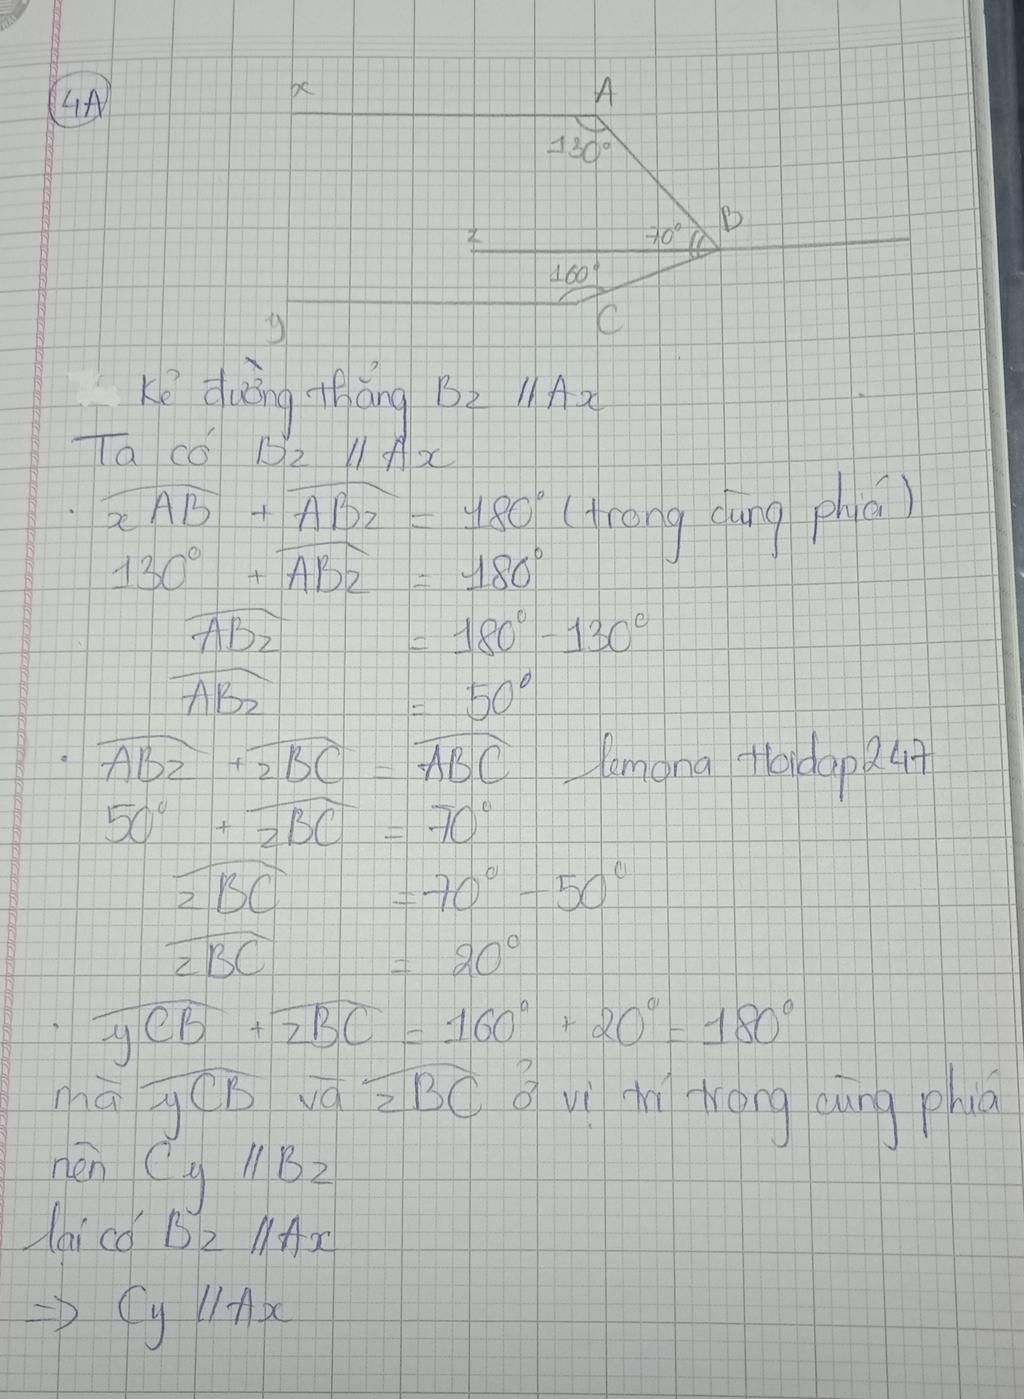 4A
x A
130°
z 70° B
160°
y C
Kẻ đường thẳng Bz // Ax
Ta có Bz // Ax
· xAB + ABz = 180° (trong cùng phiá)
130° + ABz = 180°
ABz = 180° - 130°
ABz = 50°
· ABz + zBC = ABC lemona Hoidap247
50° + zBC = 70°
zBC = 70° - 50°
zBC = 20°
· yCB + zBC = 160° + 20° = 180°
mà yCB và zBC ở vị trí trong cùng phiá
nên Cy // Bz
lại có Bz // Ax
=> Cy // Ax